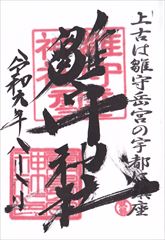 上古は雛守岳宮の宇都鎮座
雛守神社
令和元年八月